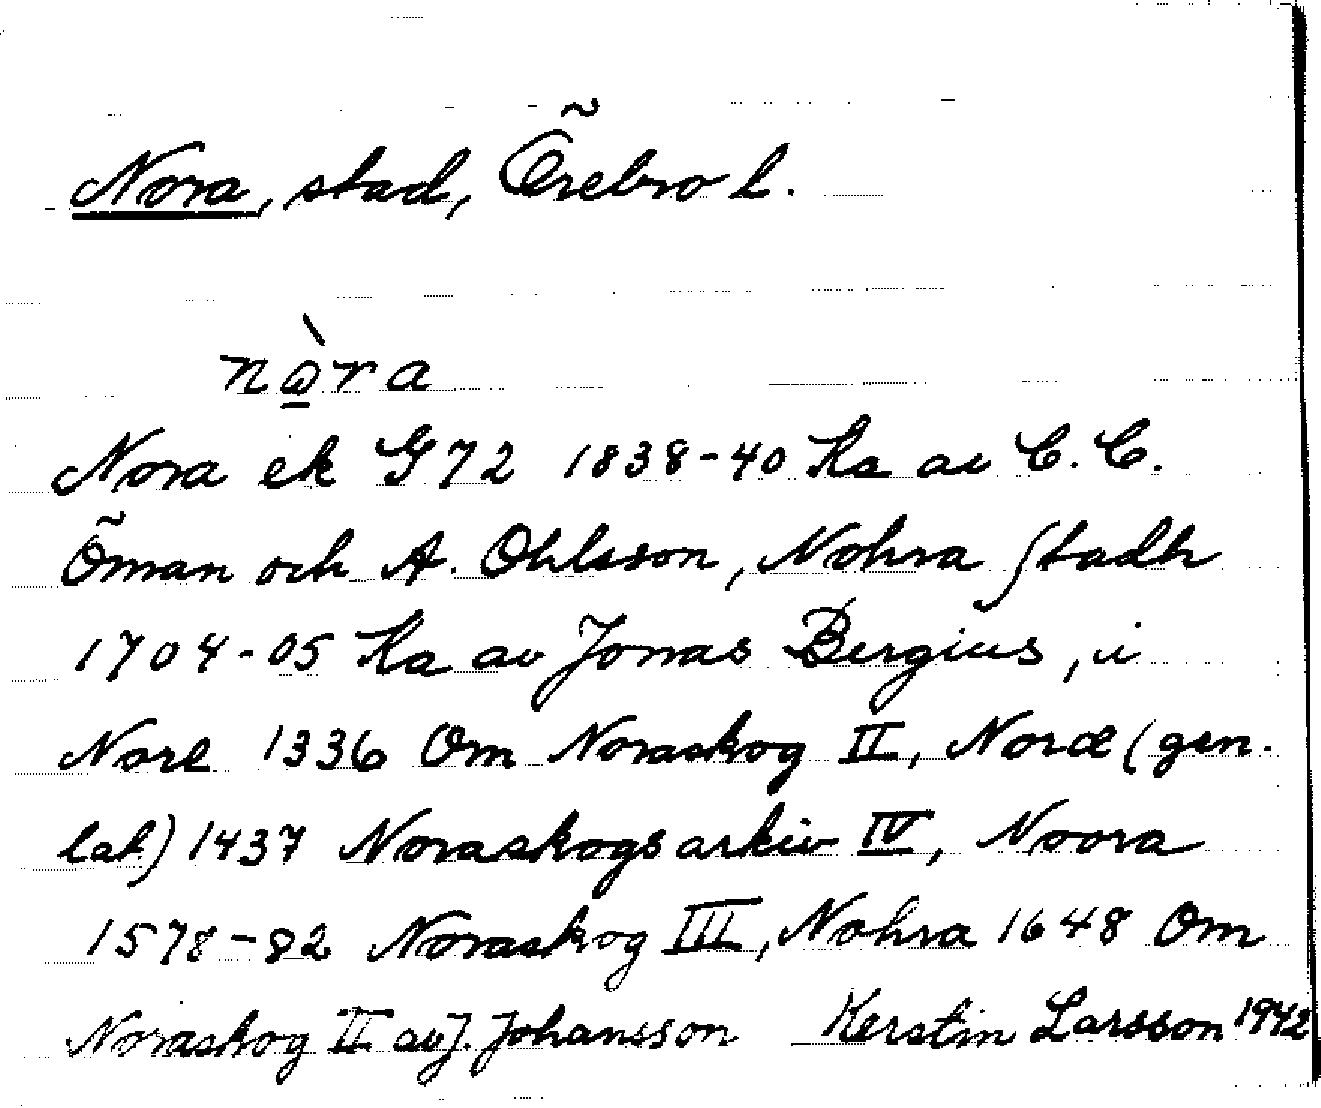 Nora, stad, Örebro l.
nò̱ra
Nora ek G72 1838-40 Ka av C. C.
Öman och A. Ohlsson, Nohra Stadh
1704-05 Ka av Jonas Bergius, i
Nore 1336 Om Noraskog II, Noræ (gen.
lat) 1437 Noraskogsarkiv IV, Noora
1578-82 Noraskog III, Nohra 1648 Om
Noraskog II av J. Johansson Kerstin Larsson 1942